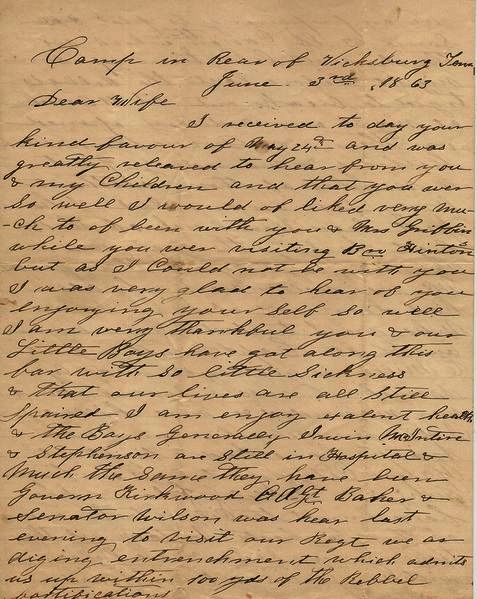 Camp in Rear of Vicksburg Tenn
June 3rd 1863
Dear Wife
I received to day your
kind favour of May 24th and was
greatly releaved to hear from you
& my Children and that you wer
so well I would of liked very mu-
-ch to of been with you & Mrs Griffin
while you wer visiting Bro Hinton
but as I Could not be with you
I was very glad to hear of you
enjoying your self so well
I am very thankful you & our
Little Boys have got along this
bar with so little Sickness
& that our lives are all Still
spaired I am enjoy exlent health
& the Boys Generaly Irwin McIntire
& Stephenson are Still in Hospital &
much the Same they have been
Govern Kirkwood Adgt Baker &
Senator Wilson was hear last
evening to visit our Regt we as
diging entrenchment which admits
us up within 100 yds of the Rebbel
fortifications